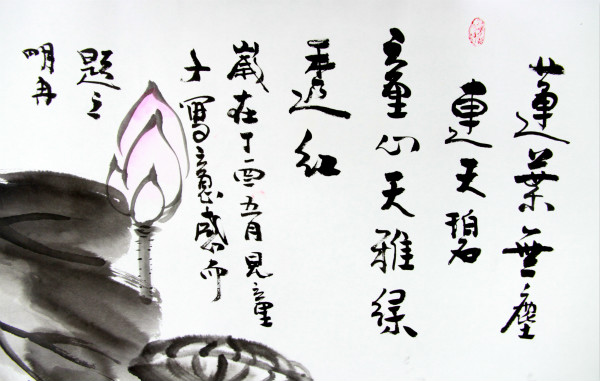 蓮葉無塵
連天碧
童心天雅緑
紅
歲在丁酉五月見童
子寫意感而
題之
明